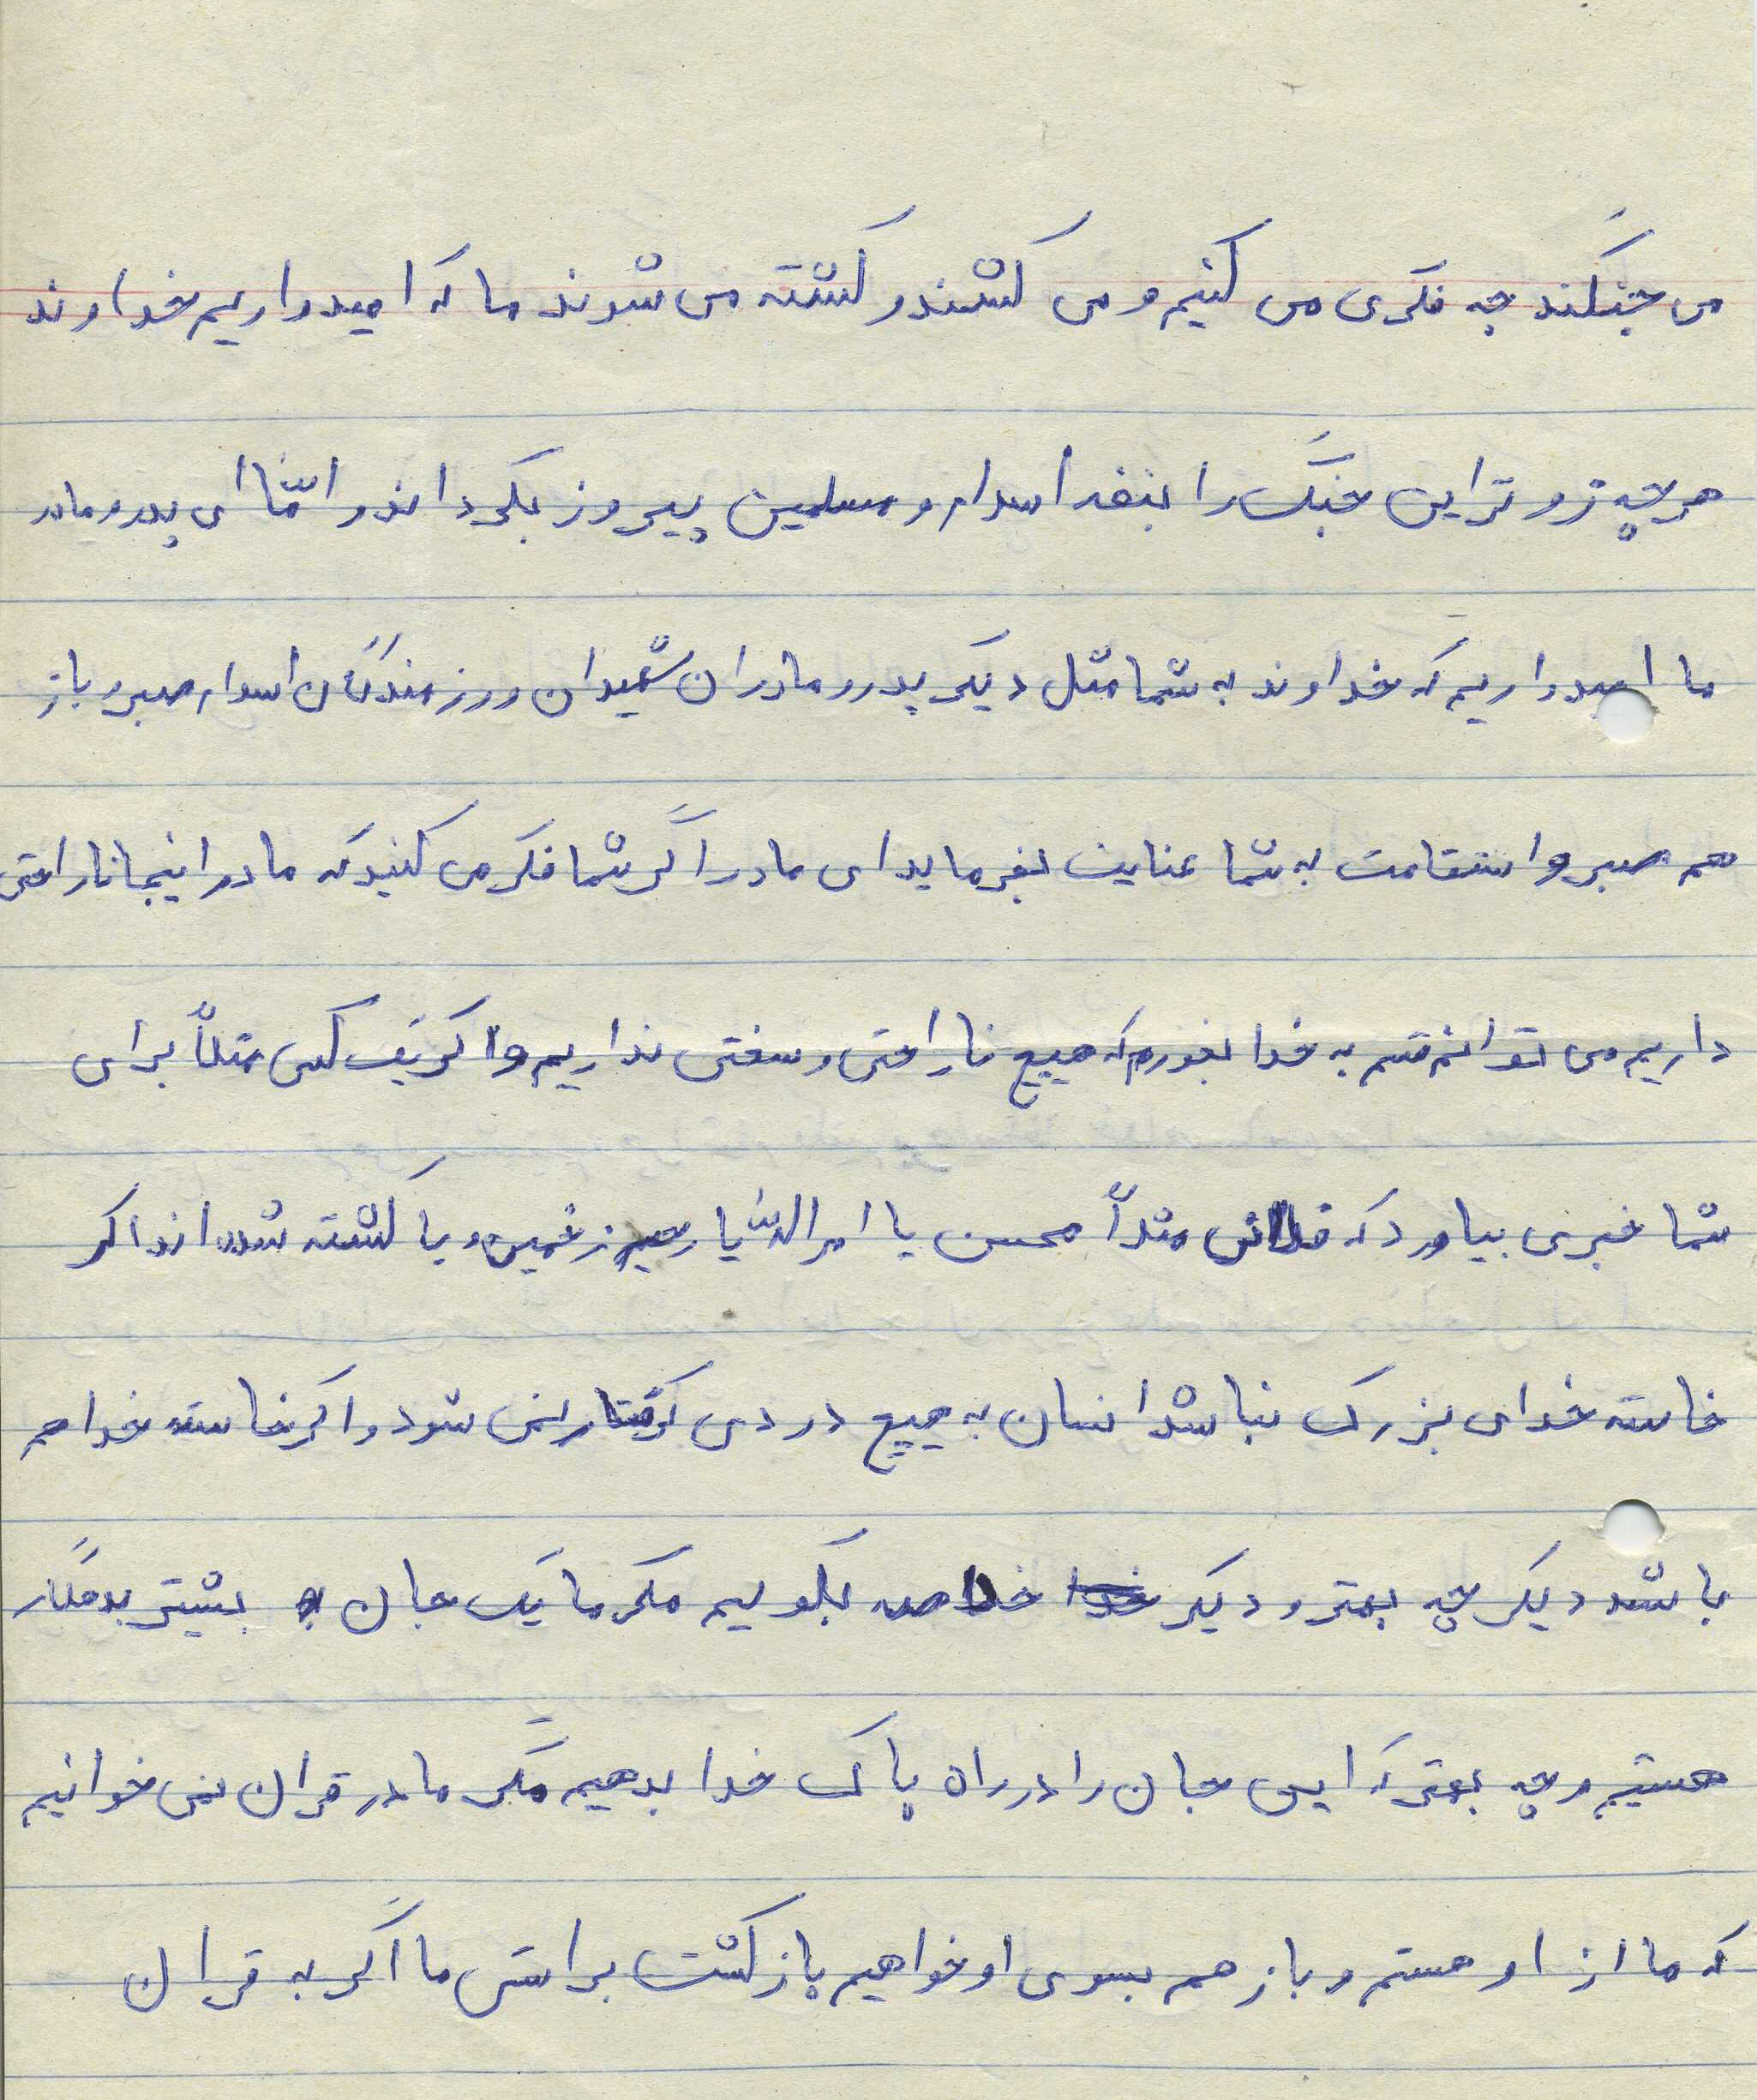 می جنگند چه فکری می کنیم و می کشند و کشته می شوند ما که امیدواریم خداوند
هر چه زودتر این جنگ را بنفع اسلام و مسلمین پیروز بگرداند و امّا ای پدر و مادر
ما امیدواریم که خداوند به شما مثل دیگر پدر و مادران شهیدان و رزمندگان اسلام صبر و باز
هم صبر و استقامت به شما عنایت بفرماید ای مادر اگر شما فکر می کنید که ما در اینجا ناراحتی
داریم می توانم قسم به خدا بخورم که هیچ ناراحتی و سختی نداریم و اگر یک کسی مثلاً برای
شما خبری بیاورد که فلانی مثلاً محسن یا امرالله یا زخمی و یا کشته شده اند اگر
خاسته خدای بزرگ نباشد انسان به هیچ دردی گرفتار نمی شود و اگر خاسته خدا هم
باشد دیگر چه بهتر و دیگر خلاصه بگوییم مگر ما یک جان بیشتر بدهکار
هستیم و چه بهتر که این جان را در راه پاک خدا بدهیم مگر ما در قران نمی خوانیم
که ما از او هستم و باز هم بسوی او خواهیم بازگشت براستی ما اگر به قران